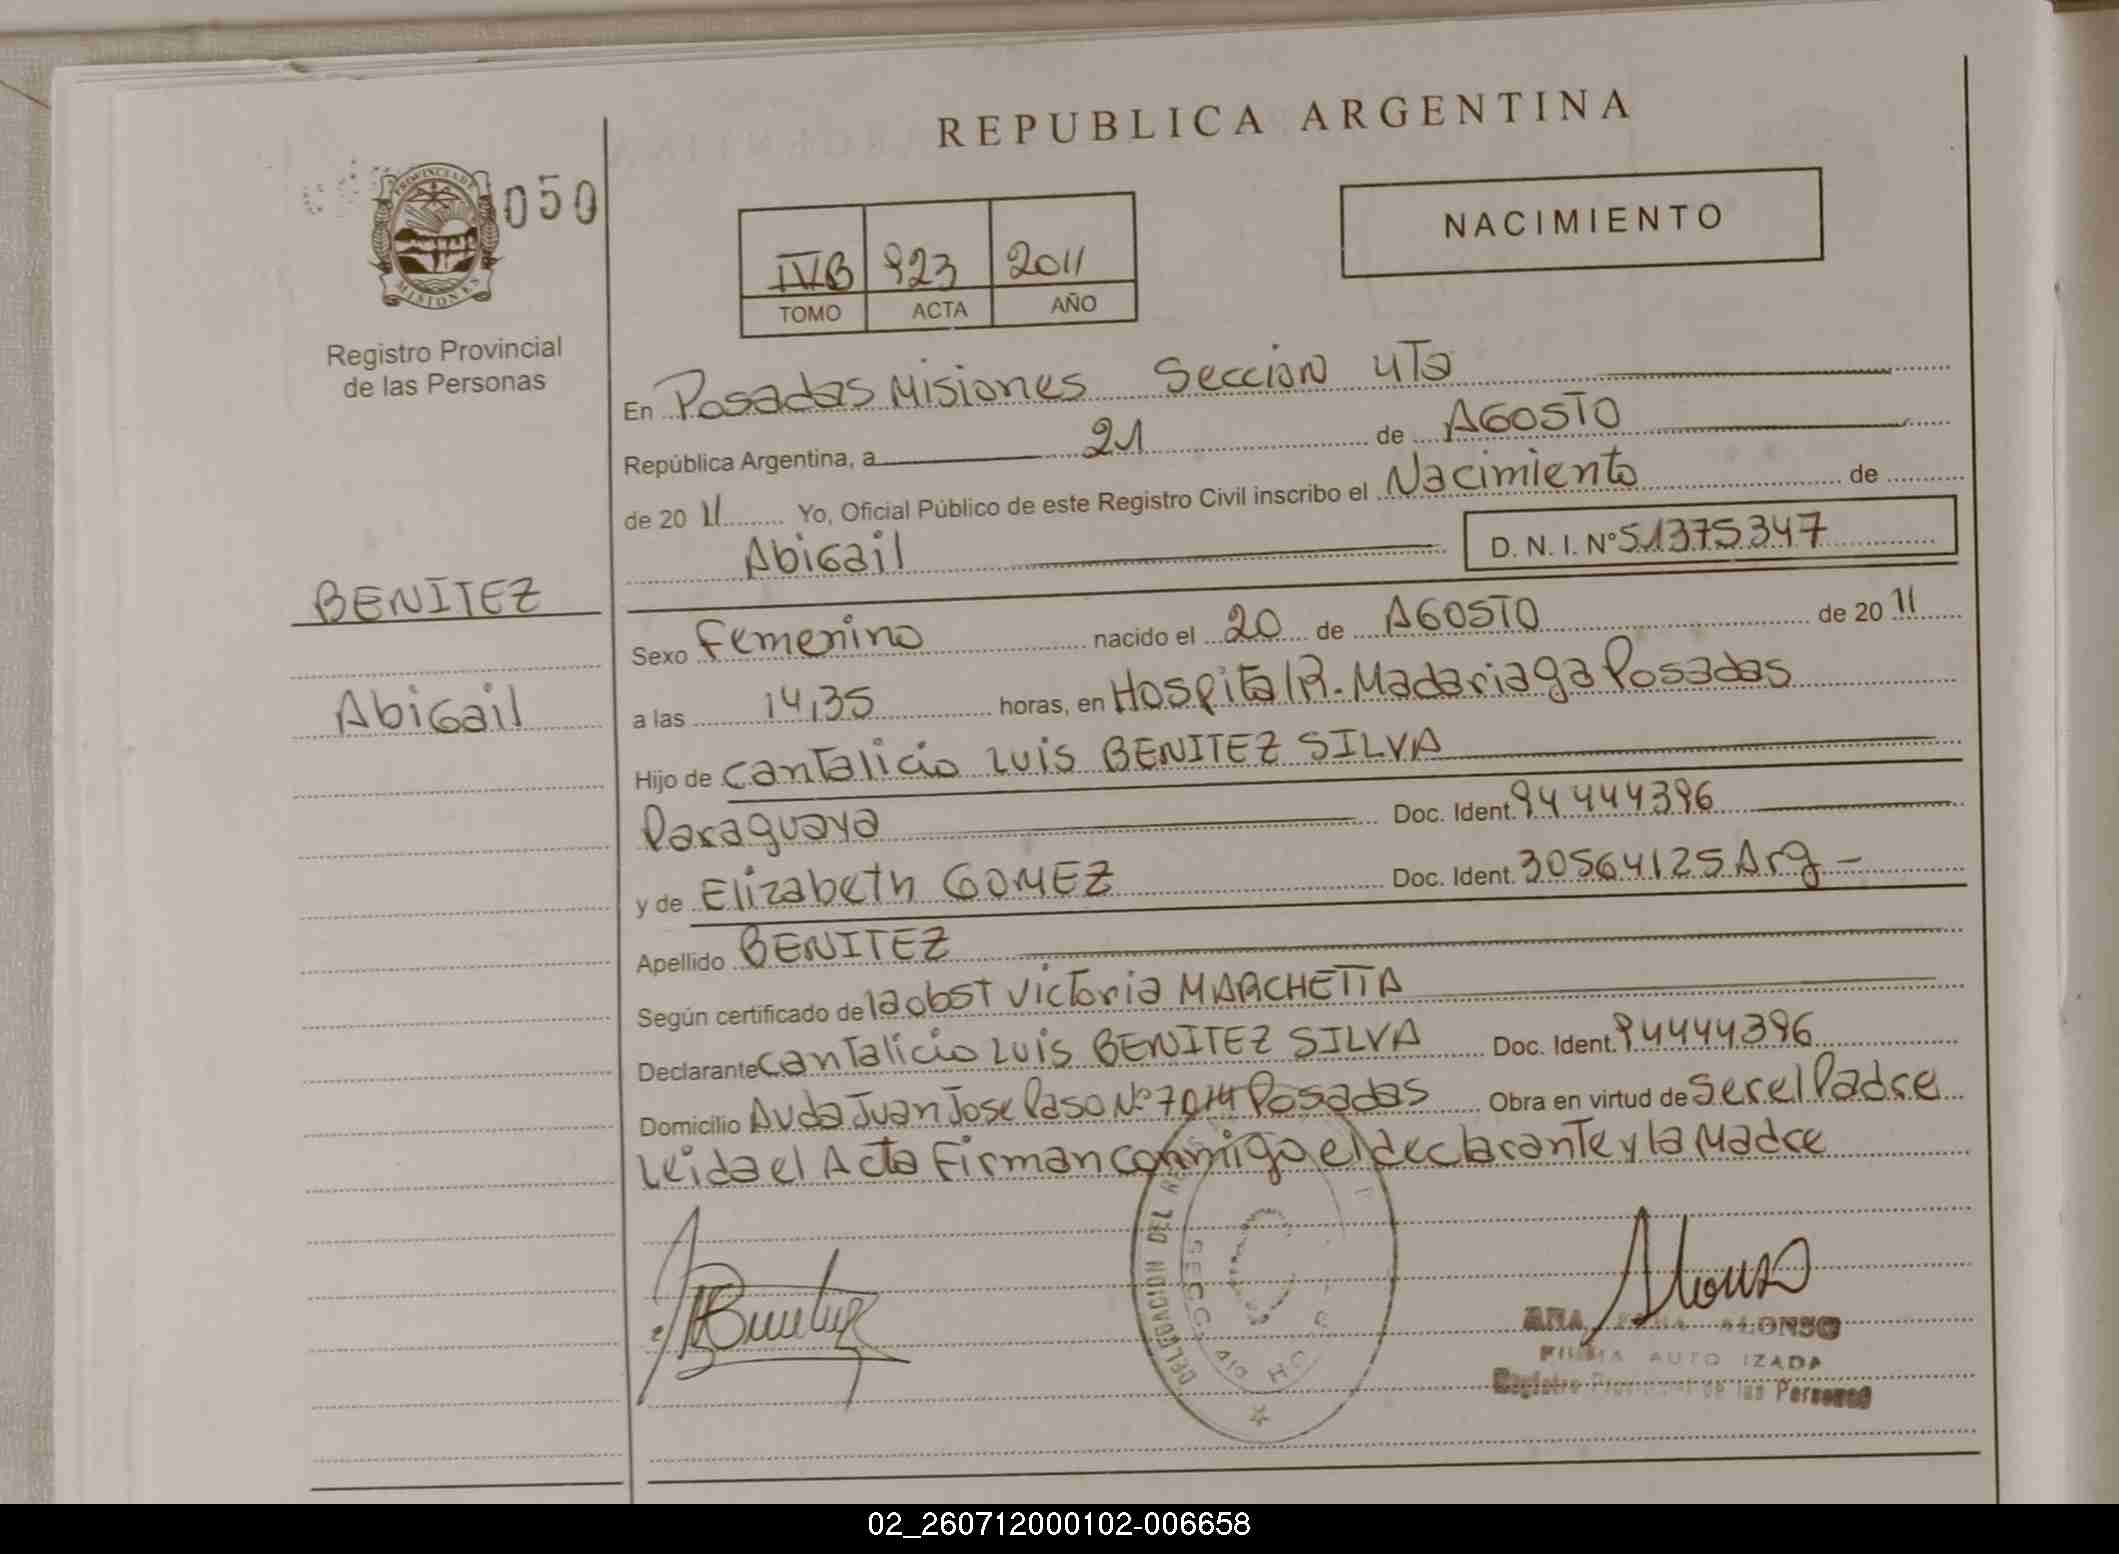 REPUBLICA ARGENTINA
PROVINCIA DE
MISIONES
050
Registro Provincial
de las Personas
IVB 923 2011
TOMO ACTA AÑO
NACIMIENTO
En Posadas Misiones Seccion 4Ta
República Argentina, a 21 de AGOSTO
de 20 11 Yo, Oficial Público de este Registro Civil inscribo el Nacimiento de
Abigail D. N. I. Nº 51375347
BENITEZ
Abigail
Sexo Femenino nacido el 20 de AGOSTO de 20 11
a las 14,35 horas, en Hospital R. Madariaga Posadas
Hijo de Cantalicio Luis BENITEZ SILVA
Paraguaya Doc. Ident. 94444396
y de Elizabeth GOMEZ Doc. Ident. 30564125 Arg -
Apellido BENITEZ
Según certificado de la obst Victoria MARCHETTA
Declarante Cantalicio Luis BENITEZ SILVA Doc. Ident. 94444396
Domicilio Avda Juan Jose Paso Nº 7014 Posadas Obra en virtud de ser el Padre
Leida el Acta Firman conmigo el declarante y la Madre
DELEGACION DEL
SECC. 4
ALONSO
FIRMA AUTORIZADA
Registro Provincial de las Personas
02_260712000102-006658